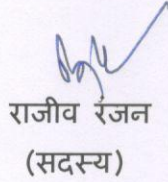 राजीव रंजन
(सदस्य)